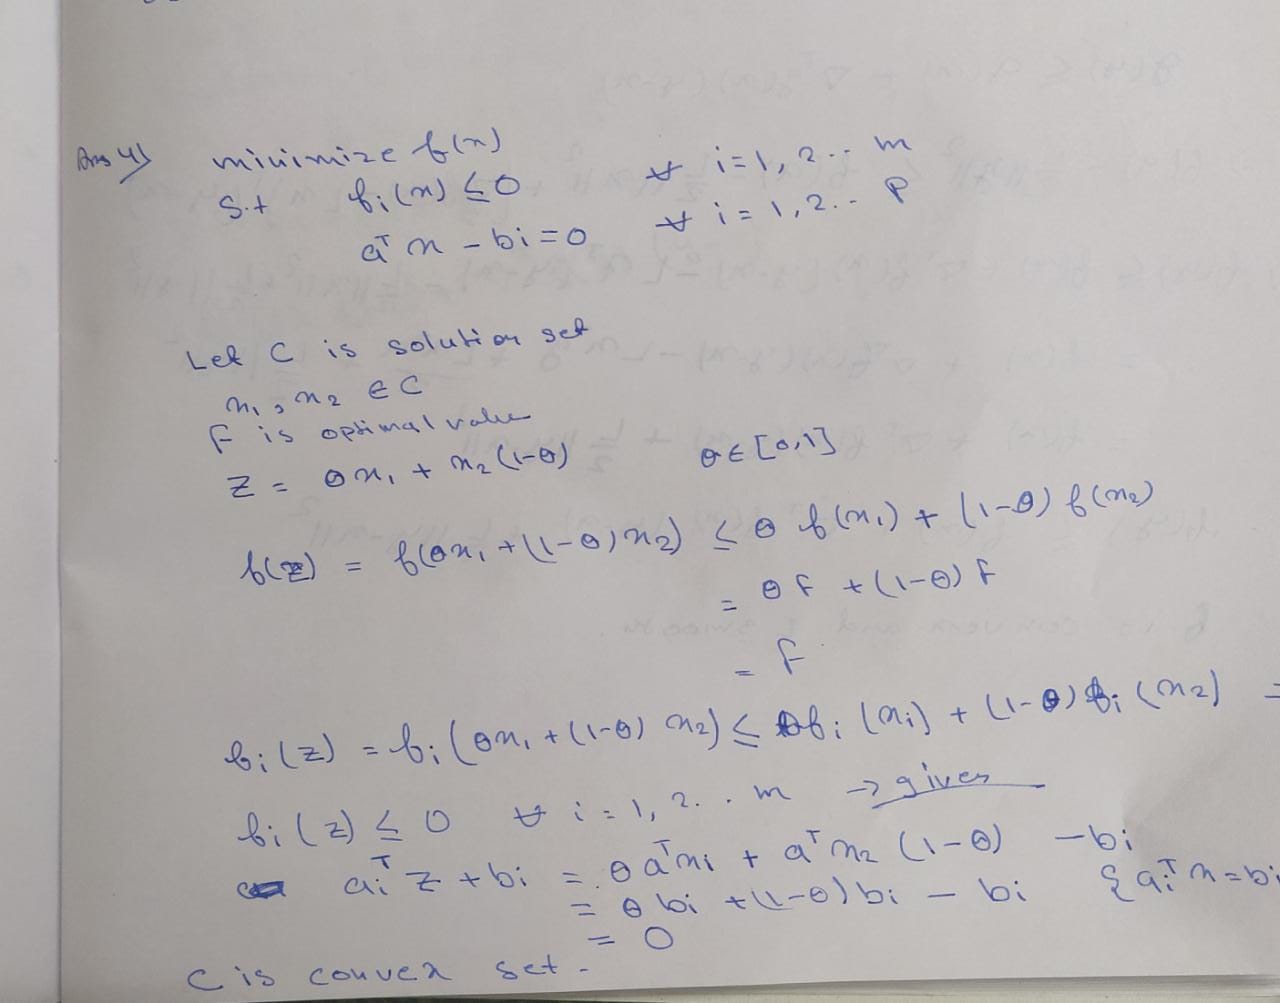 Ans 4) minimize f(x)
s.t fi(x) ≤ 0 ∀ i = 1, 2 .. m
aᵀx - bi = 0 ∀ i = 1, 2 .. p
Let C is solution set
x₁, x₂ ∈ C
F is optimal value
Z = θx₁ + x₂(1-θ) θ ∈ [0,1]
f(z) = f(θx₁ + (1-θ)x₂) ≤ θ f(x₁) + (1-θ) f(x₂)
= θF + (1-θ)F
= F
fi(z) = fi(θx₁ + (1-θ)x₂) ≤ θfi(xi) + (1-θ)fi(x₂) =
fi(z) ≤ 0 ∀ i = 1, 2 .. m → given
aiᵀz + bi = θaᵀxi + aᵀx₂(1-θ) - bi
= θbi + (1-θ)bi - bi {aiᵀx = bi
= 0
C is convex set.